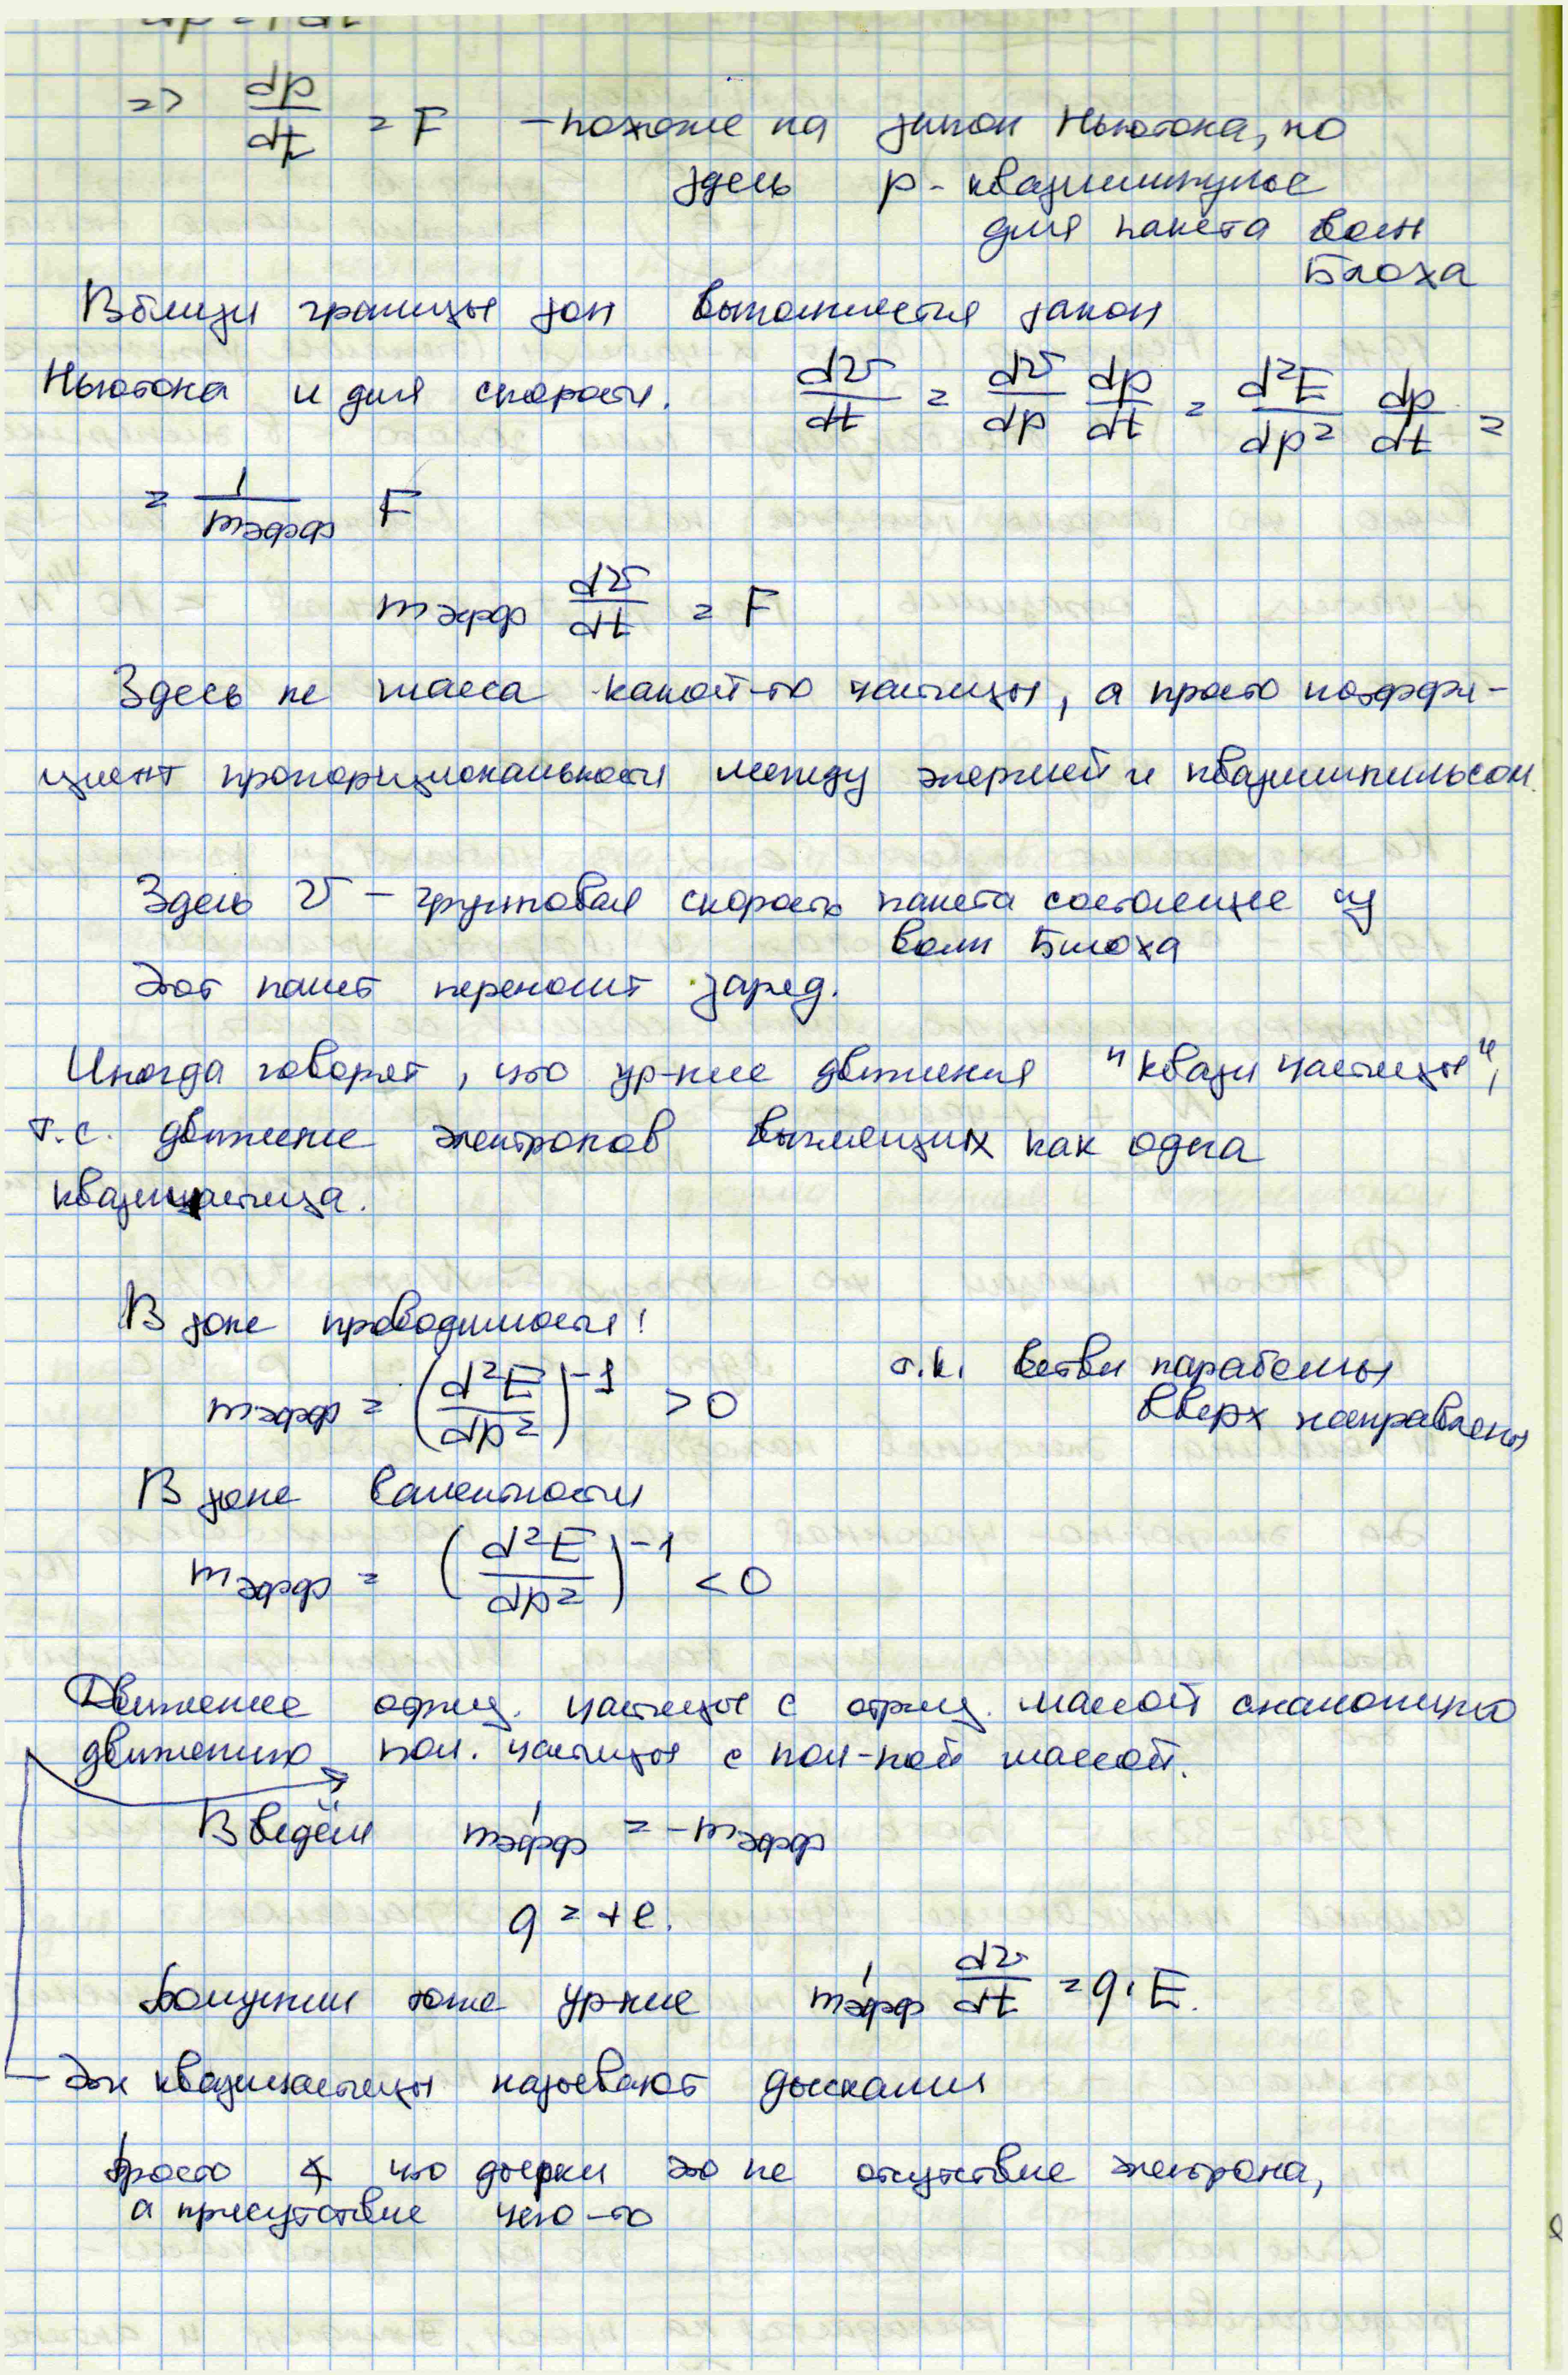 => dp/dt = F – похоже на закон Ньютона, но
здесь p - квазиимпульс
для пакета волн
Блоха
Вблизи границы зон выполняется закон
Ньютона и для скорости. dv/dt = dv/dp dp/dt = d²E/dp² dp/dt =
= 1/mэфф F
mэфф dv/dt = F
Здесь не масса какой-то частицы, а просто коэффи-
циент пропорциональности между энергией и квазиимпульсом.
Здесь v – групповая скорость пакета состоящее из
волн Блоха
Этот пакет переносит заряд.
Иногда говорят, что ур-ние движения "квази частицы",
т.е. движение электронов как одна
квазичастица.
В зоне проводимости:
mэфф = (d²E/dp²)⁻¹ > 0 т.к. ветви параболы
вверх направлены
В зоне валентности
mэфф = (d²E/dp²)⁻¹ < 0
Движение отриц. частицы с отриц. массой аналогично
движению пол. частицы с пол-ной массой.
Введём m'эфф = -mэфф
q = +e.
Получили тоже ур-ние m'эфф dv/dt = q·E.
Эти квазичастицы называют дырками
Просто что дырки это не отсутствие электрона,
а присутствие чего-то